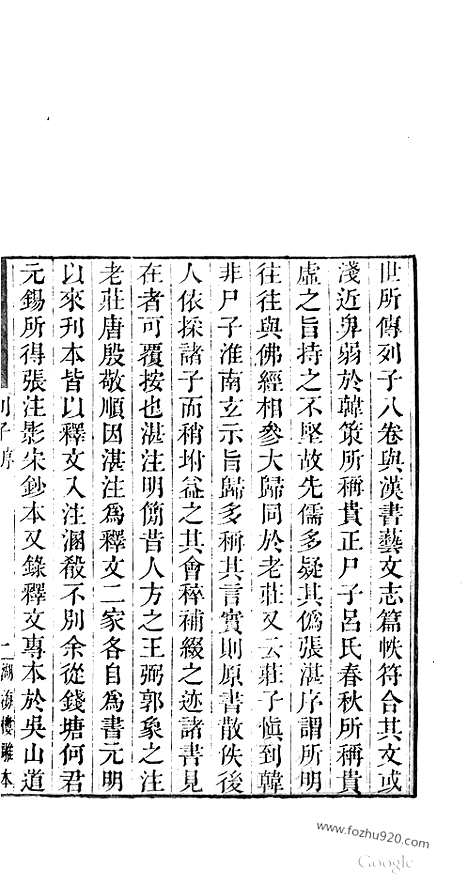 世所傳列子八卷與漢書藝文志篇帙符合其文或
淺近卑弱於韓策所稱貴正尸子呂氏春秋所稱貴
虛之旨持之不堅故先儒多疑其僞張湛序謂所明
往往與佛經相參大歸同於老莊又云莊子愼到韓
非尸子淮南玄示旨歸多稱其言實則原書散佚後
人依採諸子而稍坿益之其會稡補綴之迹諸書見
在者可覆按也湛注明簡昔人方之王弼郭象之注
老莊唐殷敬順因湛注爲釋文二家各自爲書元明
以來刊本皆以釋文入注溷殽不別余從錢塘何君
元錫所得張注影宋鈔本又錄釋文專本於吳山道
列子序
二湖海樓雕本
www.fozhu920.com
Google